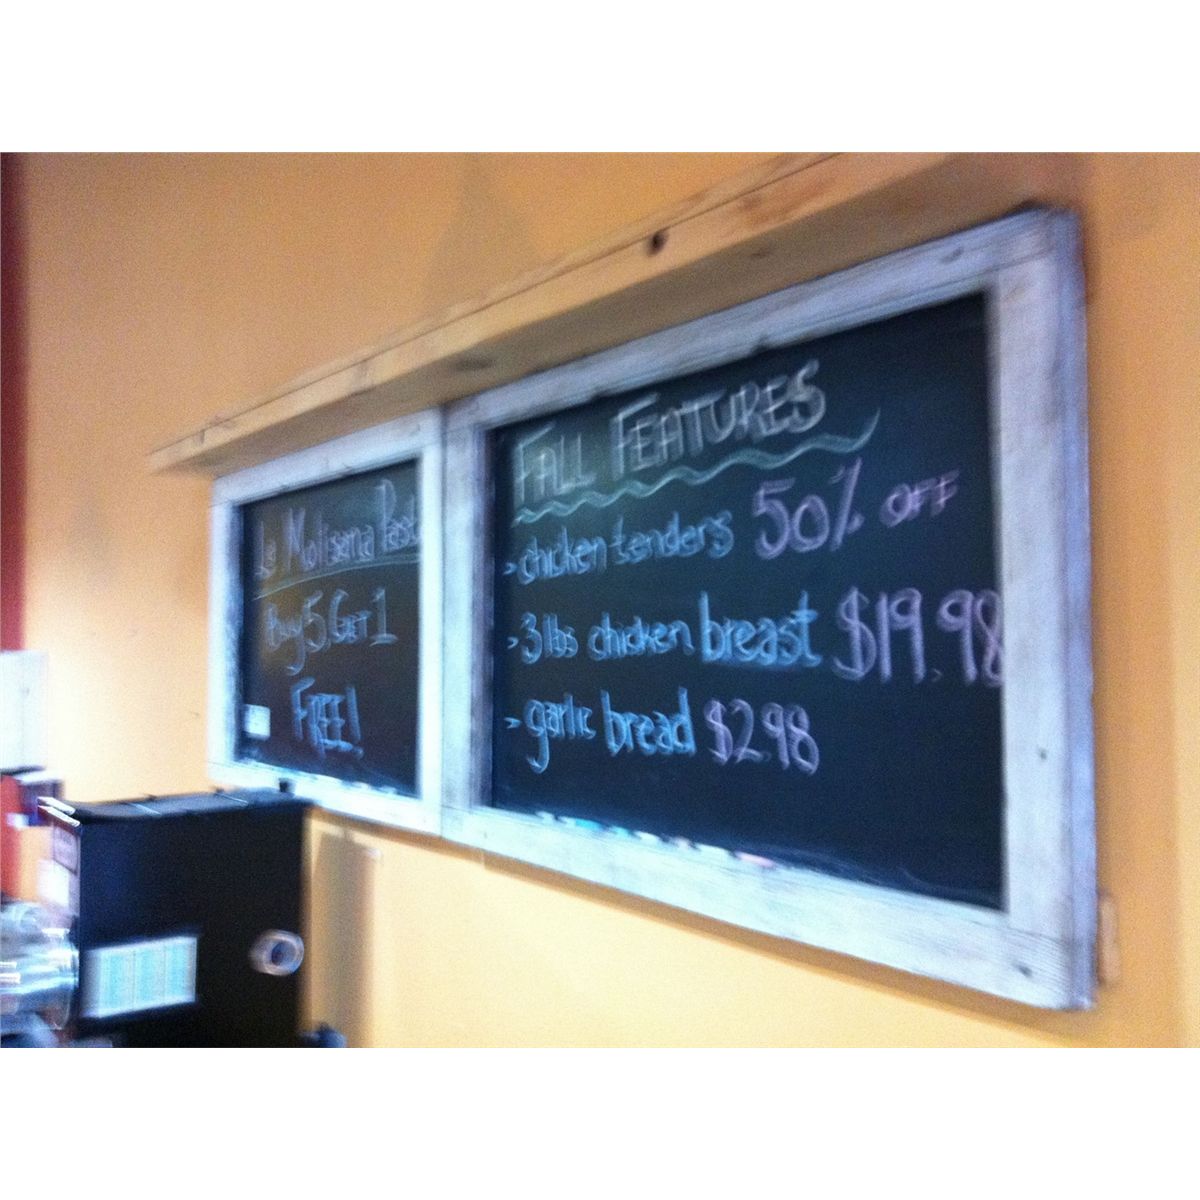 La Molisana Past
Buy 5, GET 1
FREE!
FALL FEATURES
> chicken tenders 50% OFF
> 3 lbs chicken breast $19.98
> garlic bread $2.98